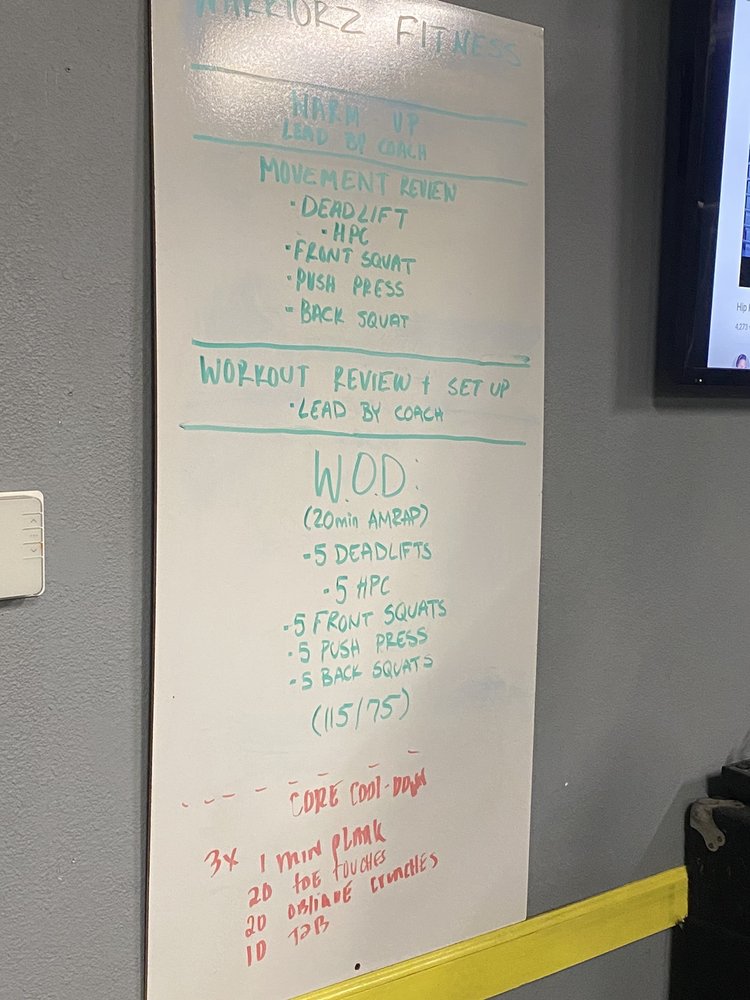 WARRIORZ FITNESS
WARM UP
LEAD BY COACH
MOVEMENT REVIEW
· DEADLIFT
· HPC
· FRONT SQUAT
· PUSH PRESS
- BACK SQUAT
WORKOUT REVIEW + SET UP
· LEAD BY COACH
W.O.D:
(20min AMRAP)
- 5 DEADLIFTS
- 5 HPC
- 5 FRONT SQUATS
- 5 PUSH PRESS
- 5 BACK SQUATS
(115/75)
CORE COOL-DOWN
3x 1 min plank
20 TOE TOUCHES
20 OBLIQUE CRUNCHES
10 T2B
Hip
4,273